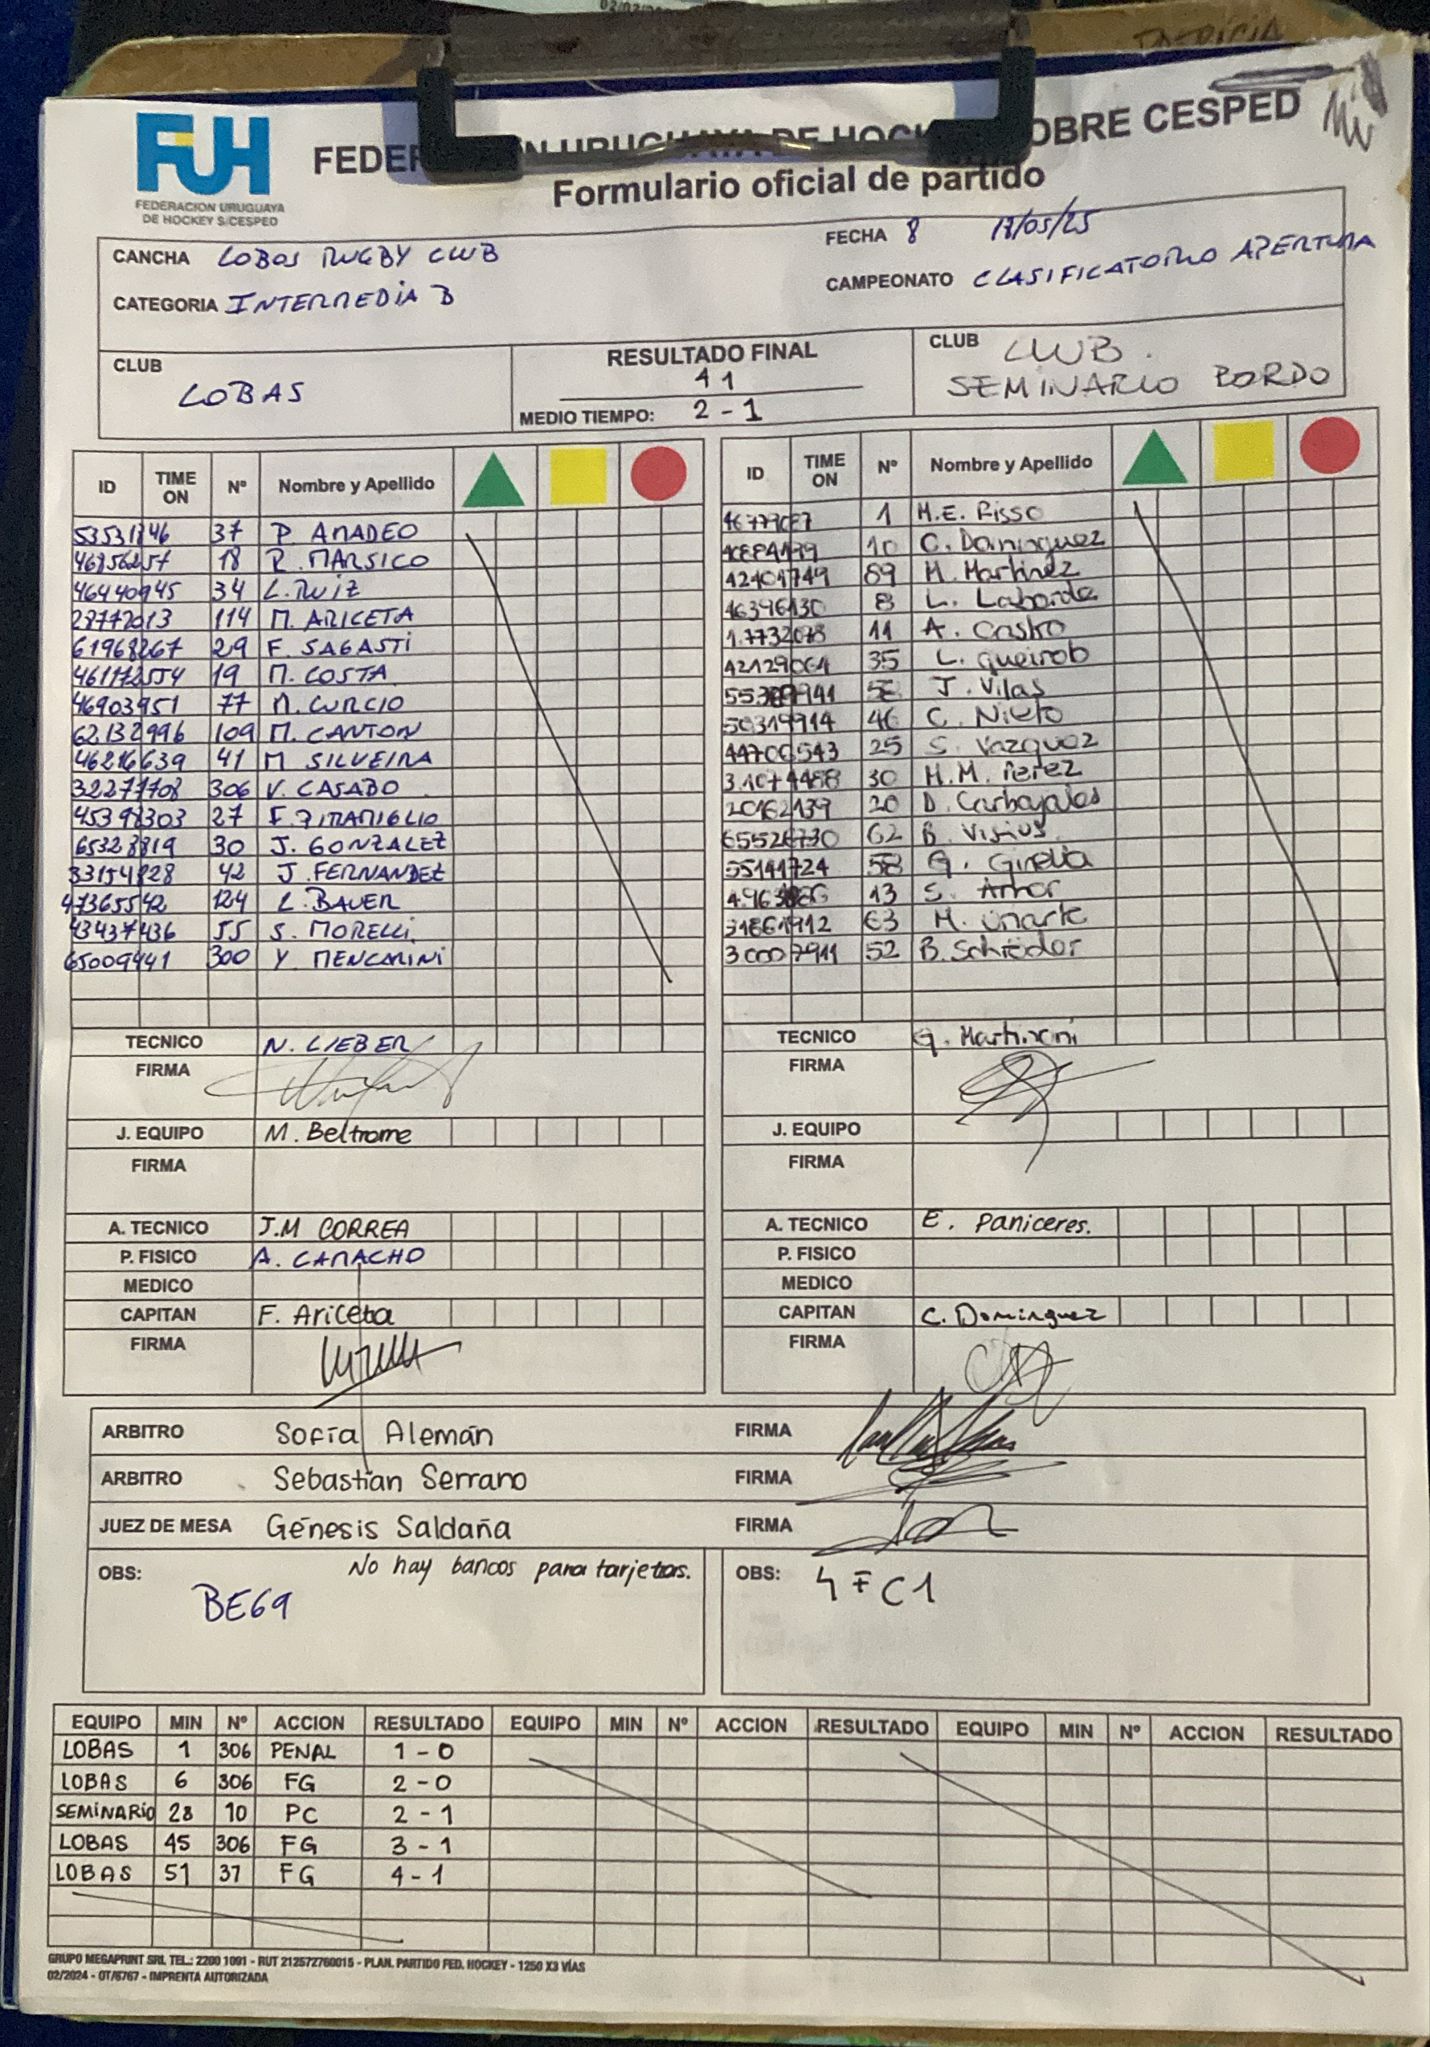 FUH
FEDERACION URUGUAYA
DE HOCKEY S/CESPED
Formulario oficial de partido
CANCHA LOBOS RUGBY CLUB
FECHA 8
CATEGORIA INTERMEDIA B
CAMPEONATO CLASIFICATORIO APERTURA
CLUB LOBAS
RESULTADO FINAL
4 1
MEDIO TIEMPO: 2 - 1
CLUB CLUB.
SEMINARIO BORDO
ID TIME ON Nº Nombre y Apellido
37 P. AMADEO
18 R. MARSICO
46440945 34 L. RUIZ
114 M. ARICETA
61968267 29 F. SAGASTI
19 M. COSTA
46903951 77 M. CURCIO
62132996 109 M. CANTON
46216639 41 M SILVEIRA
306 V. CASABO
45398303 27
30 J. GONZALEZ
42 J. FERNANDEZ
124 L. BAUER
43437436 55 S. MORELLI
65009441 300 Y. MENCARINI
TECNICO N. LIEBER
FIRMA
J. EQUIPO M. Beltrame
FIRMA
A. TECNICO J.M CORREA
P. FISICO A. CAMACHO
MEDICO
CAPITAN F. Ariceta
FIRMA
ID TIME ON Nº Nombre y Apellido
1 M.E. Risso
10 C. Dominguez
42401749 89 M. Martinez
46396130 8 L. Laborde
11 A. Castro
42129064 35 L. Queirob
J. Vilas
50319914 46 C. Nieto
44706543 25 S. Vazquez
30 M.M. Perez
20162139 20 D. Carbajales
62 B.
55141724 58 G.
13 S.
31861912 63 M.
30007911 52 B.
TECNICO G.
FIRMA
J. EQUIPO
FIRMA
A. TECNICO E. Paniceres.
P. FISICO
MEDICO
CAPITAN C. Dominguez
FIRMA
ARBITRO Sofía Alemán FIRMA
ARBITRO Sebastian Serrano FIRMA
JUEZ DE MESA Génesis Saldaña FIRMA
OBS: No hay bancos para tarjetas.
BE69
OBS:
EQUIPO MIN Nº ACCION RESULTADO EQUIPO MIN Nº ACCION RESULTADO EQUIPO MIN Nº ACCION RESULTADO
LOBAS 1 306 PENAL 1 - 0
LOBAS 6 306 FG 2 - 0
SEMINARIO 28 10 PC 2 - 1
LOBAS 45 306 FG 3 - 1
LOBAS 51 37 FG 4 - 1
GRUPO MEGAPRINT SRL TEL.: 2200 1091 - RUT 212572760015 - PLAN. PARTIDO FED. HOCKEY - 1250 X3 VÍAS
02/2024 - OT/6767 - IMPRENTA AUTORIZADA